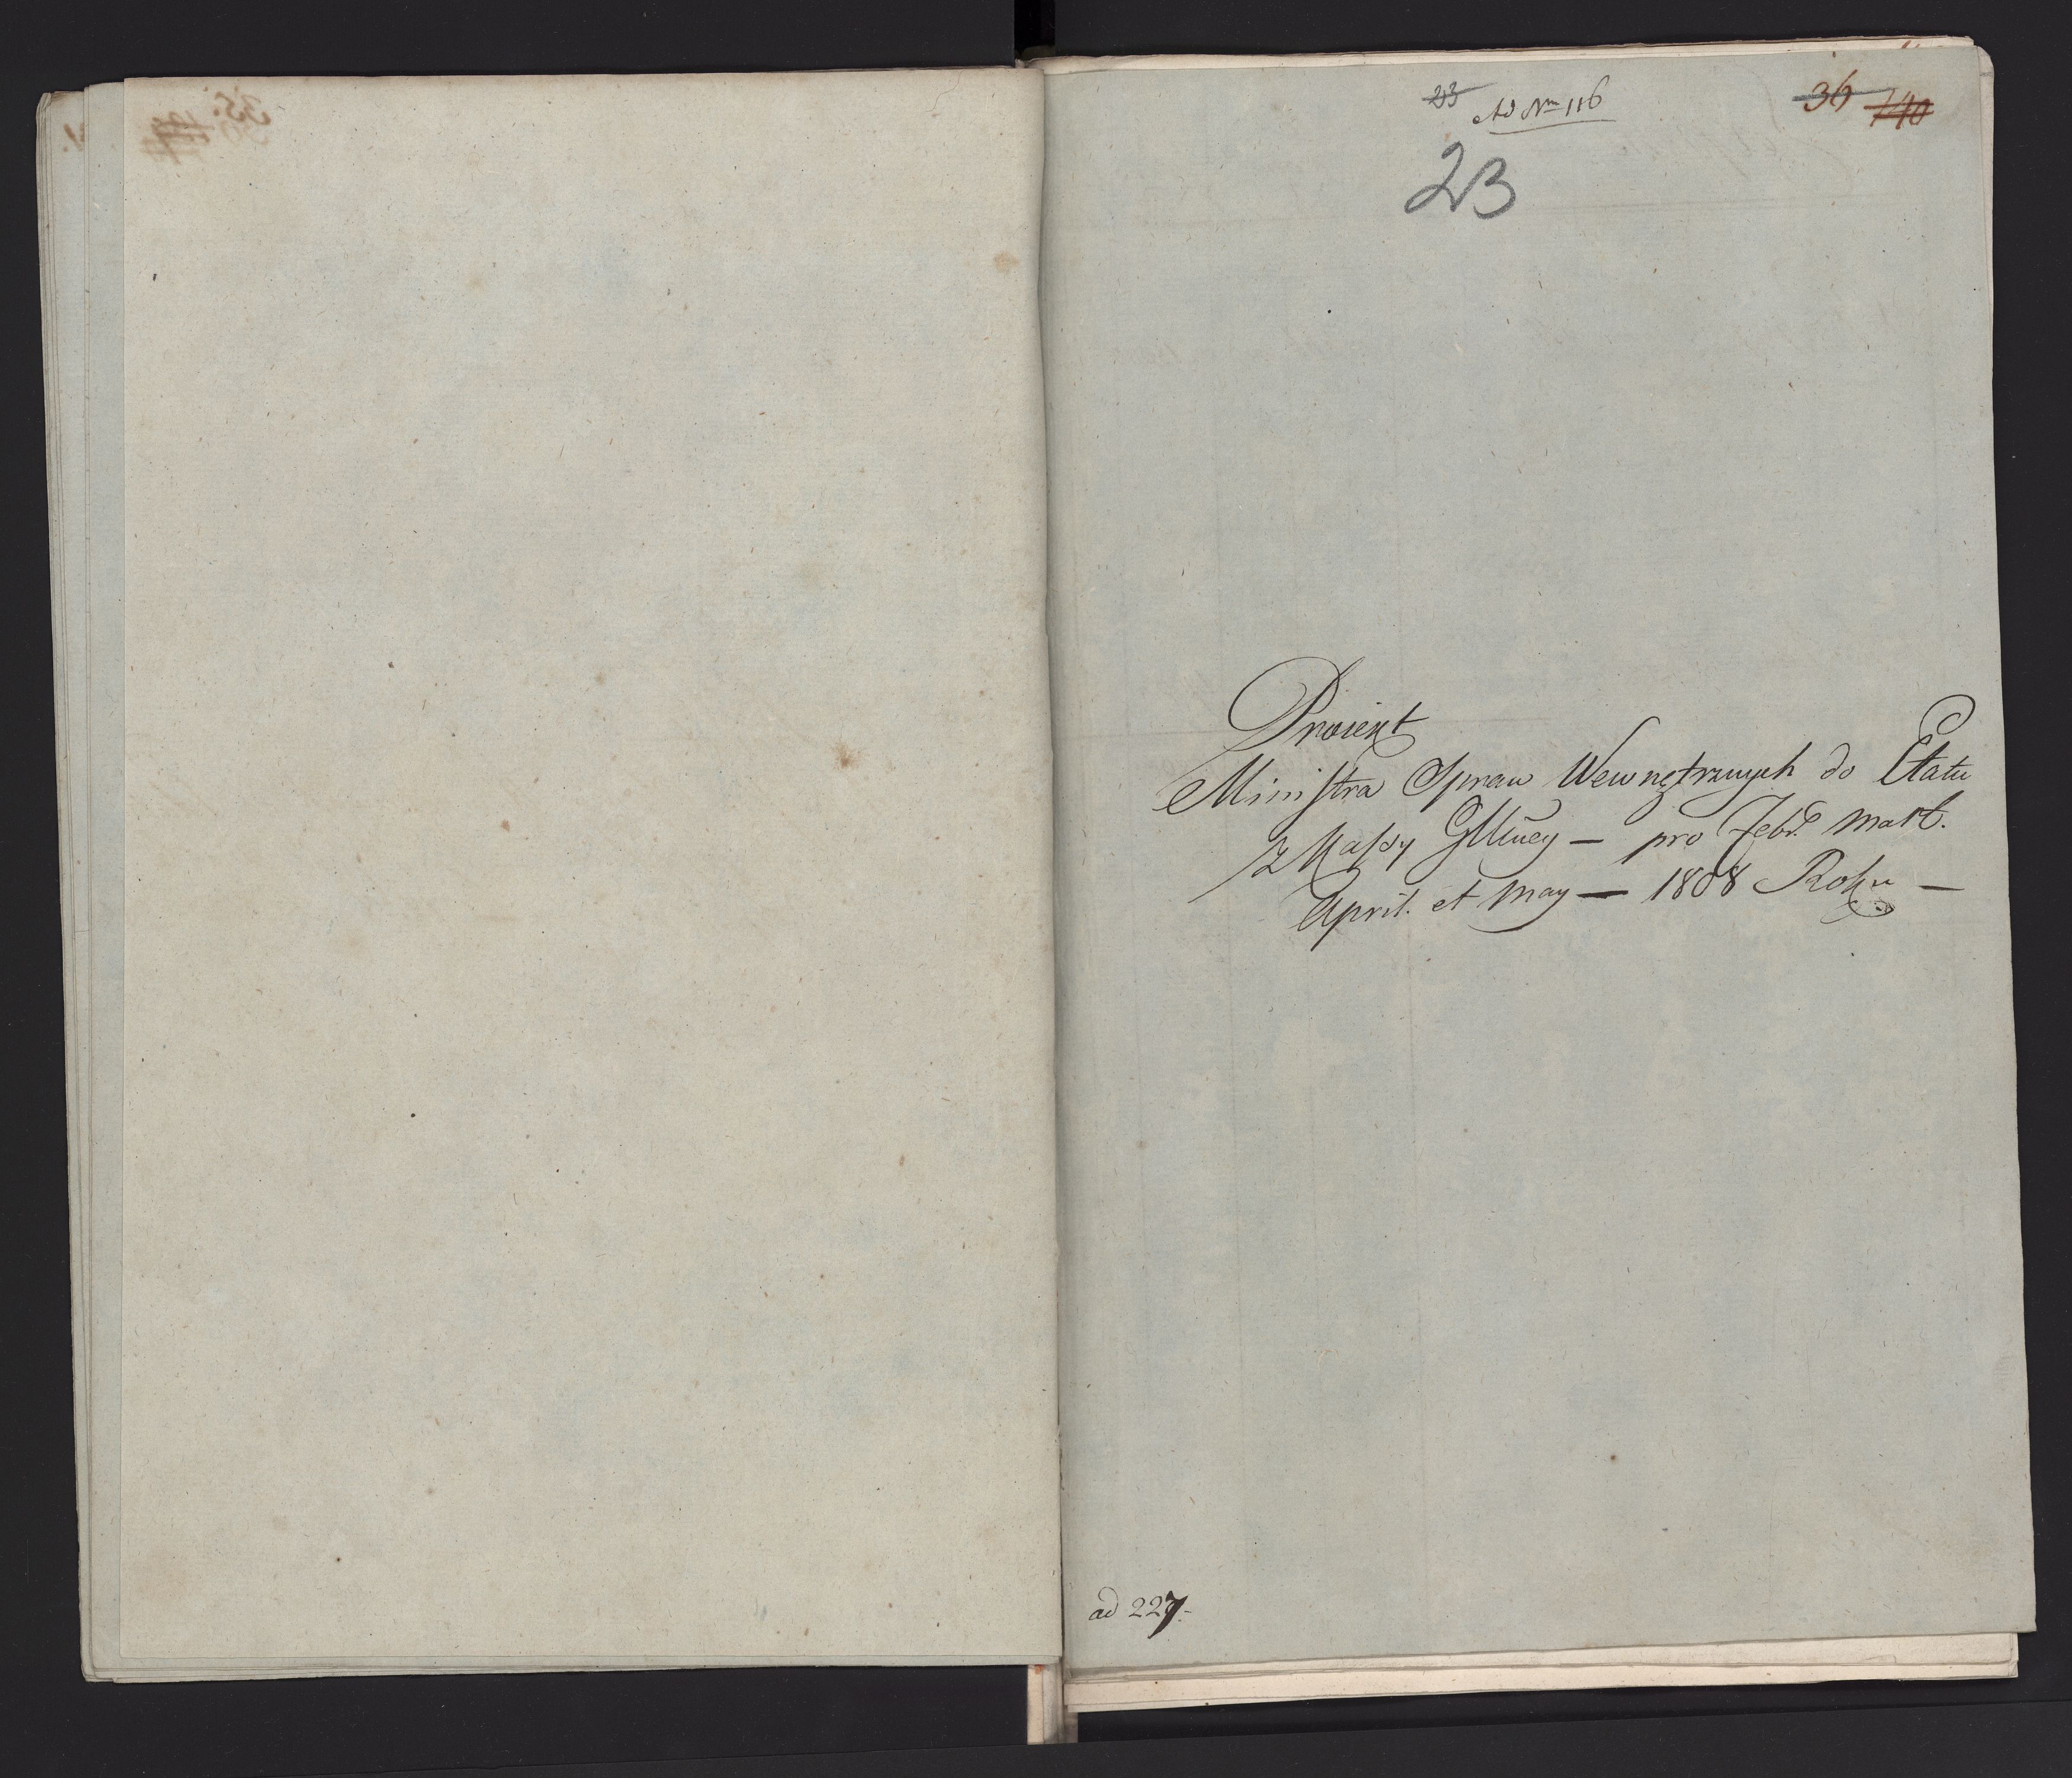 23 Ad Nrm 116
36 140
23
Proiekt
Ministra Spraw Wewnętrznych do Etatu
z Kassy Gllney — pro Febr. Mart.
April. et May — 1808 Roku —
ad 227.